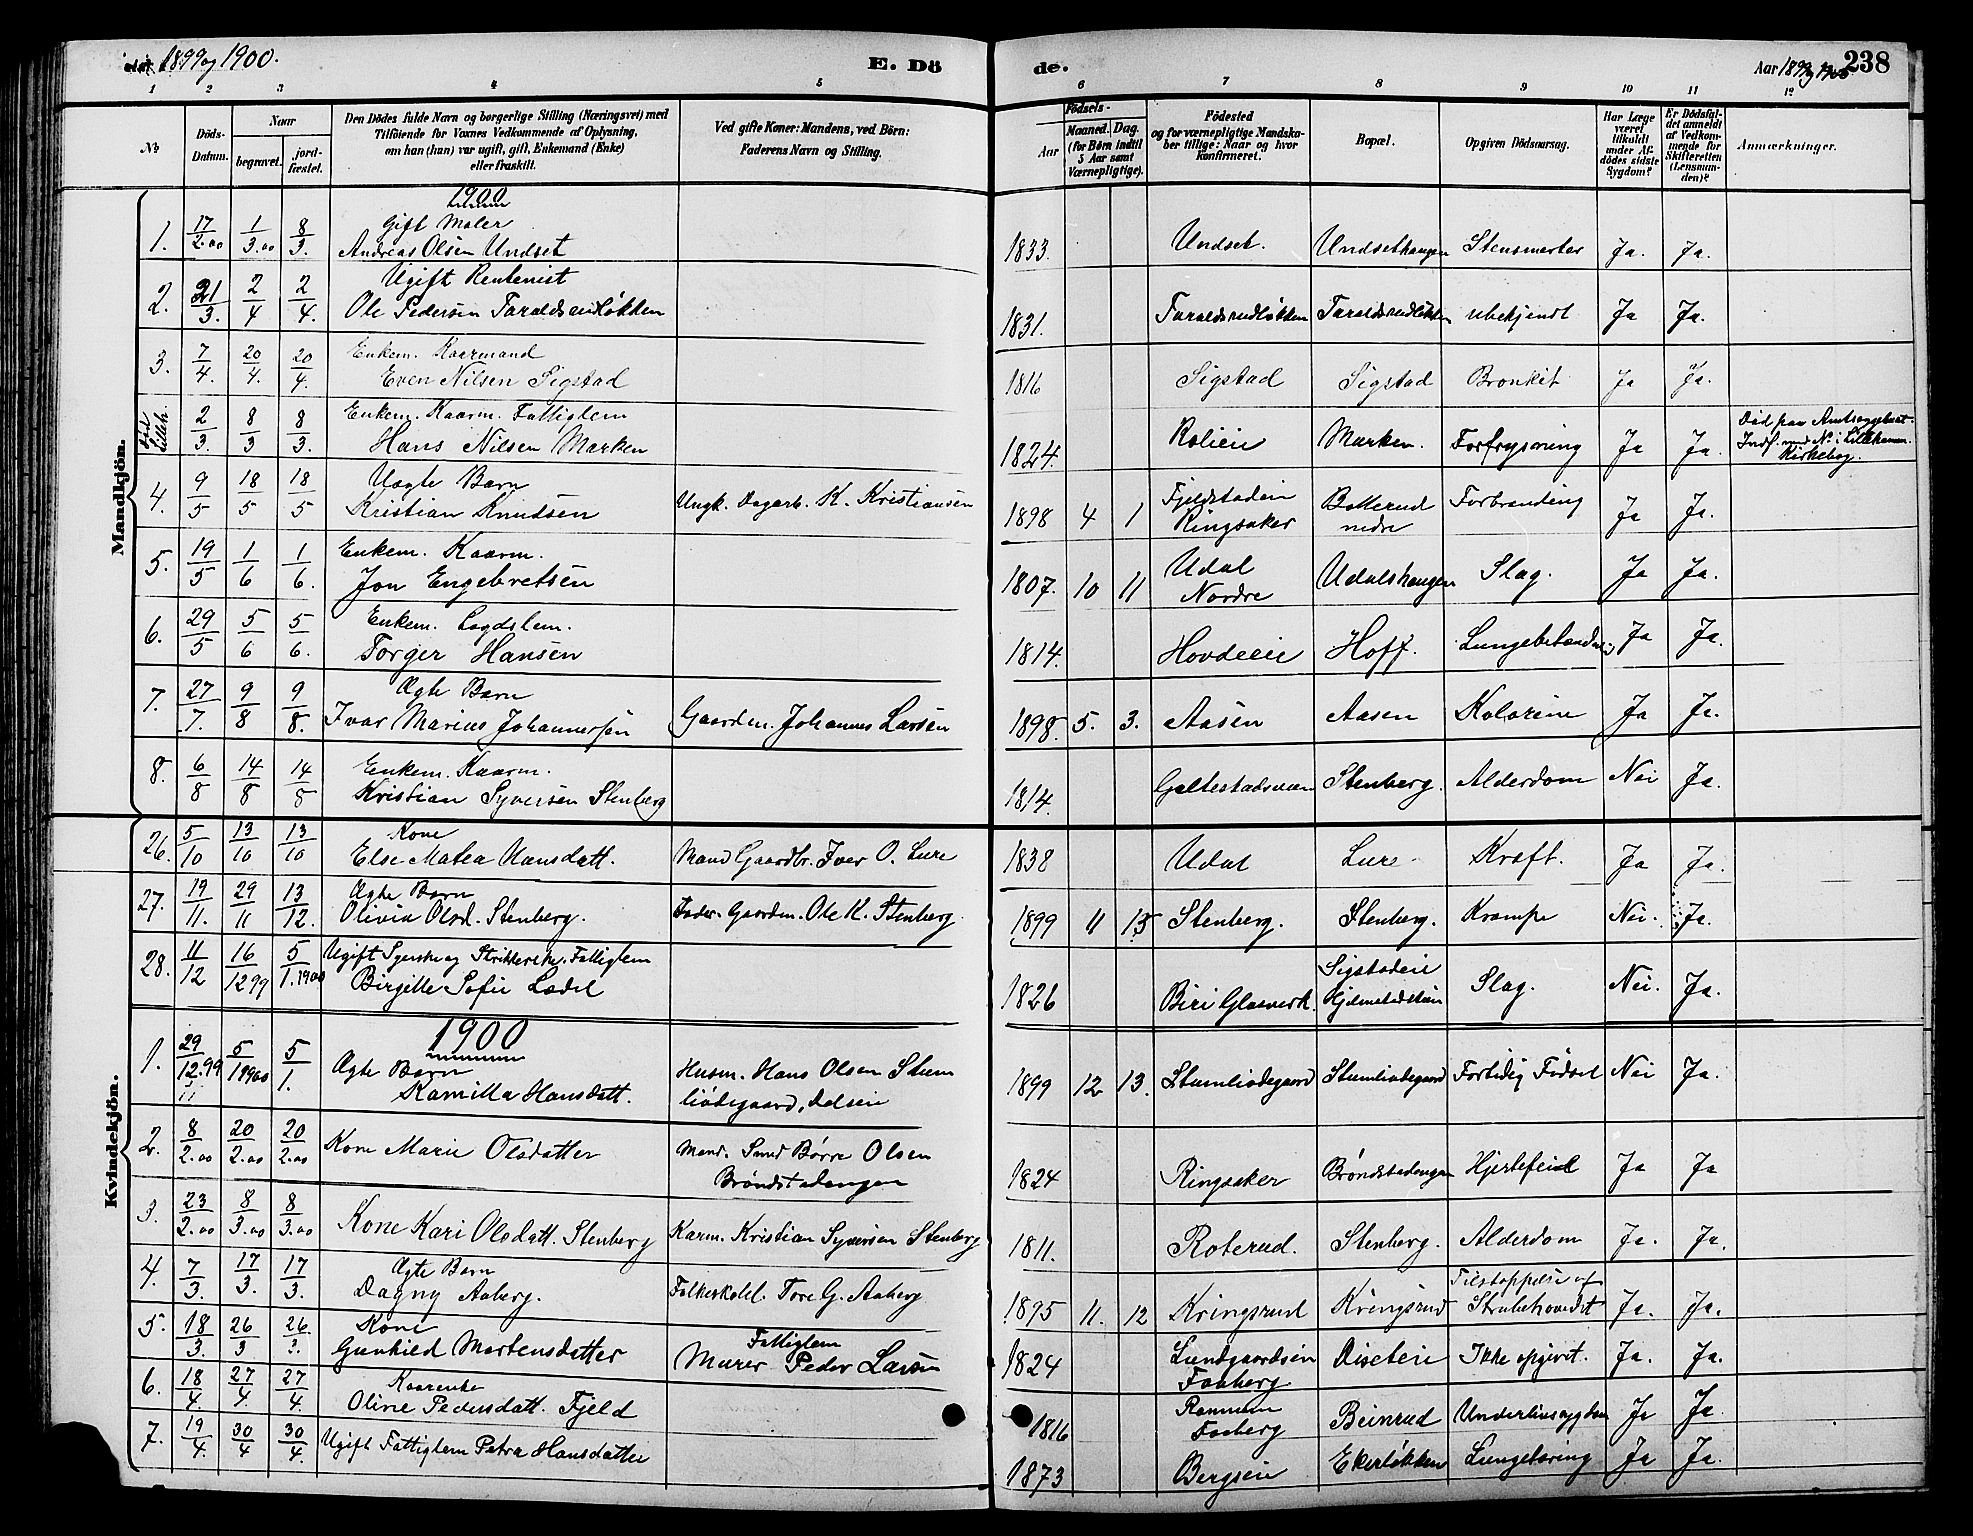 Aar 1899 og 1900.
E. Dö
de.
Aar 1899 og 1900
238
1 2 3 4 5 6 7 8 9 10 11 12
No
Döds-Datum.
Naar
begravet.
jord-fæstet.
Den Dödes fulde Navn og borgerlige Stilling (Næringsvei) med
Tilföiende for Voxnes Vedkommende af Oplysning,
om han (hun) var ugift, gift, Enkemand (Enke)
eller fraskilt.
Ved gifte Koner: Mandens, ved Börn:
Faderens Navn og Stilling.
Födsels-
Aar
Maaned.
Dag.
(for Börn indtil
5 Aar samt
Værnepligtige).
Födested
og for værnepligtige Mandska-
ber tillige: Naar og hvor
konfirmeret.
Bopæl.
Opgiven Dödsaarsag.
Har Læge
været
tilkaldt
under Af-
dödes sidste
Sygdom?
Er Dödsfal-
det anmeldt
af Vedkom-
mende for
Skifteretten
(Lensman-
den)?
Anmærkninger.
Mandkjön.
1900
1. 17/2.00 1/3.00 8/3. Gift Maler
Andreas Olsen Undset 1833. Undset. Undsethaugen Ja. Ja.
2. 21/3. 2/4 2/4. Ugift Rentenist
Ole Pedersen Taraldsrudløkken 1831. Taraldsrudløkken Taraldsrudløkken ubekjendt Ja Ja.
3. 7/4. 20/4. 20/4. Enkem. Kaarmand
Even Nilsen Sigstad 1816 Sigstad Sigstad Bronkit Ja Ja.
død Lilleh. 2/3. 8/3 8/3. Enkem. Kaarm. Fattiglem
Hans Nilsen Marken 1824. Roliein Marken. Forfrysning Ja Ja. Død paa Amtssygehuset.
Indf. med No i Lillehammer
Kirkebog.
4. 9/5 18/5 18/5 Uægte Barn
Kristian Knudsen Ungk. Dagarb. K. Kristiansen 1898 4 1 Fjeldstadein
Ringsaker Botterud
nedre Forbrænding Ja Ja.
5. 19/5 1/6 1/6. Enkem. Kaarm.
Jon Engebretsen 1807. 10 11 Udal
Nordre Udalshaugen Slag. Ja Ja.
6. 29/5 5/6 5/6. Enkem. Lægdslem.
Torger Hansen 1814. Hovdeeie Hoff. Lungebetændelse Ja Ja.
7. 27/7. 9/8 9/8. Ægte Barn
Ivar Marius Johannessen Gaardm. Johannes Larsen 1898. 5. 3. Aasen Aasen Kolerine Ja Ja.
8. 6/8 14/8 14/8 Enkem. Kaarm.
Kristian Syversen Stenberg 1814. Stenberg. Alderdom Nei Ja.
Kvindekjön.
26. 5/10 13/10 13/10 Kone
Else Matea Hansdatt. Mand Gaardbr. Iver O. Lure 1838 Udal Lure Kræft. Ja Ja.
27. 19/11. 29/11 13/12. Ægte Barn
Olivia Olsd. Stenberg. Fader. Gaardm. Ole K. Stenberg 1899 11 15 Stenberg. Stenberg. Krampe Nei. Ja.
28. 11/12 16/12 99 5/1. 1900 Ugift Syerske og Strikkerske. Fattiglem
Birgitte Sofie Lædel 1826 Biri Glasverk. Sigstadeie
Slag. Nei. Ja.
1900
1. 29/12.99 5/1 1900 5/1. Ægte Barn
Kamilla Hansdatt. Husm. Hans Olsen Stum-
liødegaard, 1899 12 13. Stumliødegaard Stumliødegaard Fortidig Fødsel Nei Ja.
2. 8/2.00 20/2.00 20/2.00 Kone Marie Olsdatter Mand. Smed Børre Olsen
Brøndstadengen 1824 Ringsaker Brøndstadengen Hjertefeil Ja Ja
3. 23/2.00 8/3.00 8/3.00 Kone Kari Olsdatt. Stenberg Karm. Kristian Syversen Stenberg 1811. Roterud. Stenberg. Alderdom Ja. Ja.
4. 7/3. 17/3. 17/3. Ægte Barn
Dagny Aaberg. Tore G. Aaberg 1895 11. 12 Kringsrud Kringsrud Tilstoppelse af
Strubehovedet Ja. Ja.
5. 18/3. 26/3 26/3. Kone
Gunhild Mortensdatter Fattiglem
Murer Peder Larsen 1824 Lundgaardseien
Faaberg Diseteie Ikke opgivet. Ja. Ja.
6. 18/4. 27/4 27/4. Kaarenke
Oline Pedersdatt. Fjeld 1816 Rommen
Faaberg Beinrud Underlivssygdom Ja Ja
7. 19/4. 30/4 30/4. Ugift Fattiglem Petra Hansdatter 1873 Bergseie Ekerløkken Lungetæring Ja Ja.